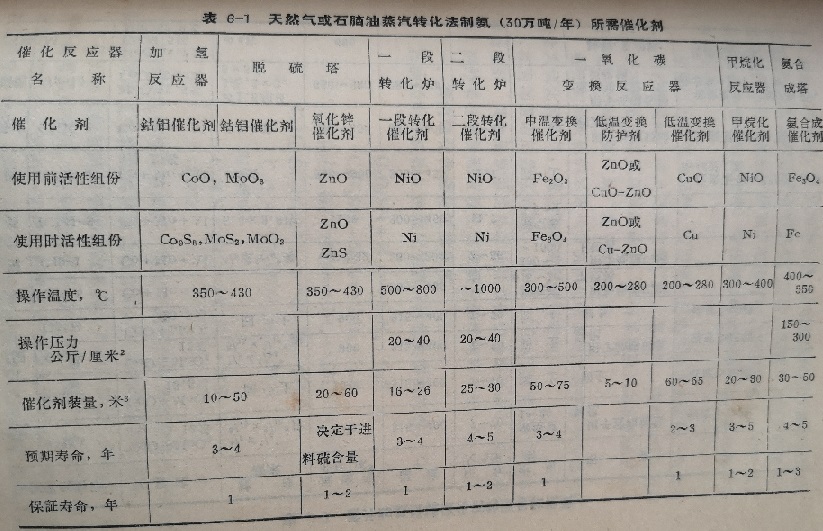 表 6-1 天然气或石脑油蒸汽转化法制氨(30万吨/年)所需催化剂
催化反应器 加氢 脱硫塔 一段 二段 一氧化碳 甲烷化 氨合
名称 反应器 转化炉 转化炉 变换反应器 反应器 成塔
催化剂 钴钼催化剂 钴钼催化剂 氧化锌 一段转化 二段转化 中温变换 低温变换 低温变换 甲烷化 氨合成
催化剂 催化剂 催化剂 催化剂 防护剂 催化剂 催化剂 催化剂
使用前活性组份 CoO, MoO₃ ZnO NiO NiO Fe₂O₃ ZnO或 CuO NiO Fe₃O₄
CuO-ZnO
使用时活性组份 Co₉S₈,MoS₂,MoO₂ ZnO Ni Ni Fe₃O₄ ZnO或 Cu Ni Fe
ZnS Cu-ZnO
操作温度,℃ 350~430 350~430 500~800 ~1000 300~500 200~280 200~280 300~400 400~
550
操作压力 20~40 20~40 150~
公斤/厘米² 300
催化剂装量,米³ 10~50 20~60 16~26 25~30 50~75 5~10 20~30 30~50
预期寿命,年 3~4 决定于进 3~4 4~5 3~4 2~3 3~5 4~5
料硫含量
保证寿命,年 1 1~2 1 1~2 1 1 1~2 1~3